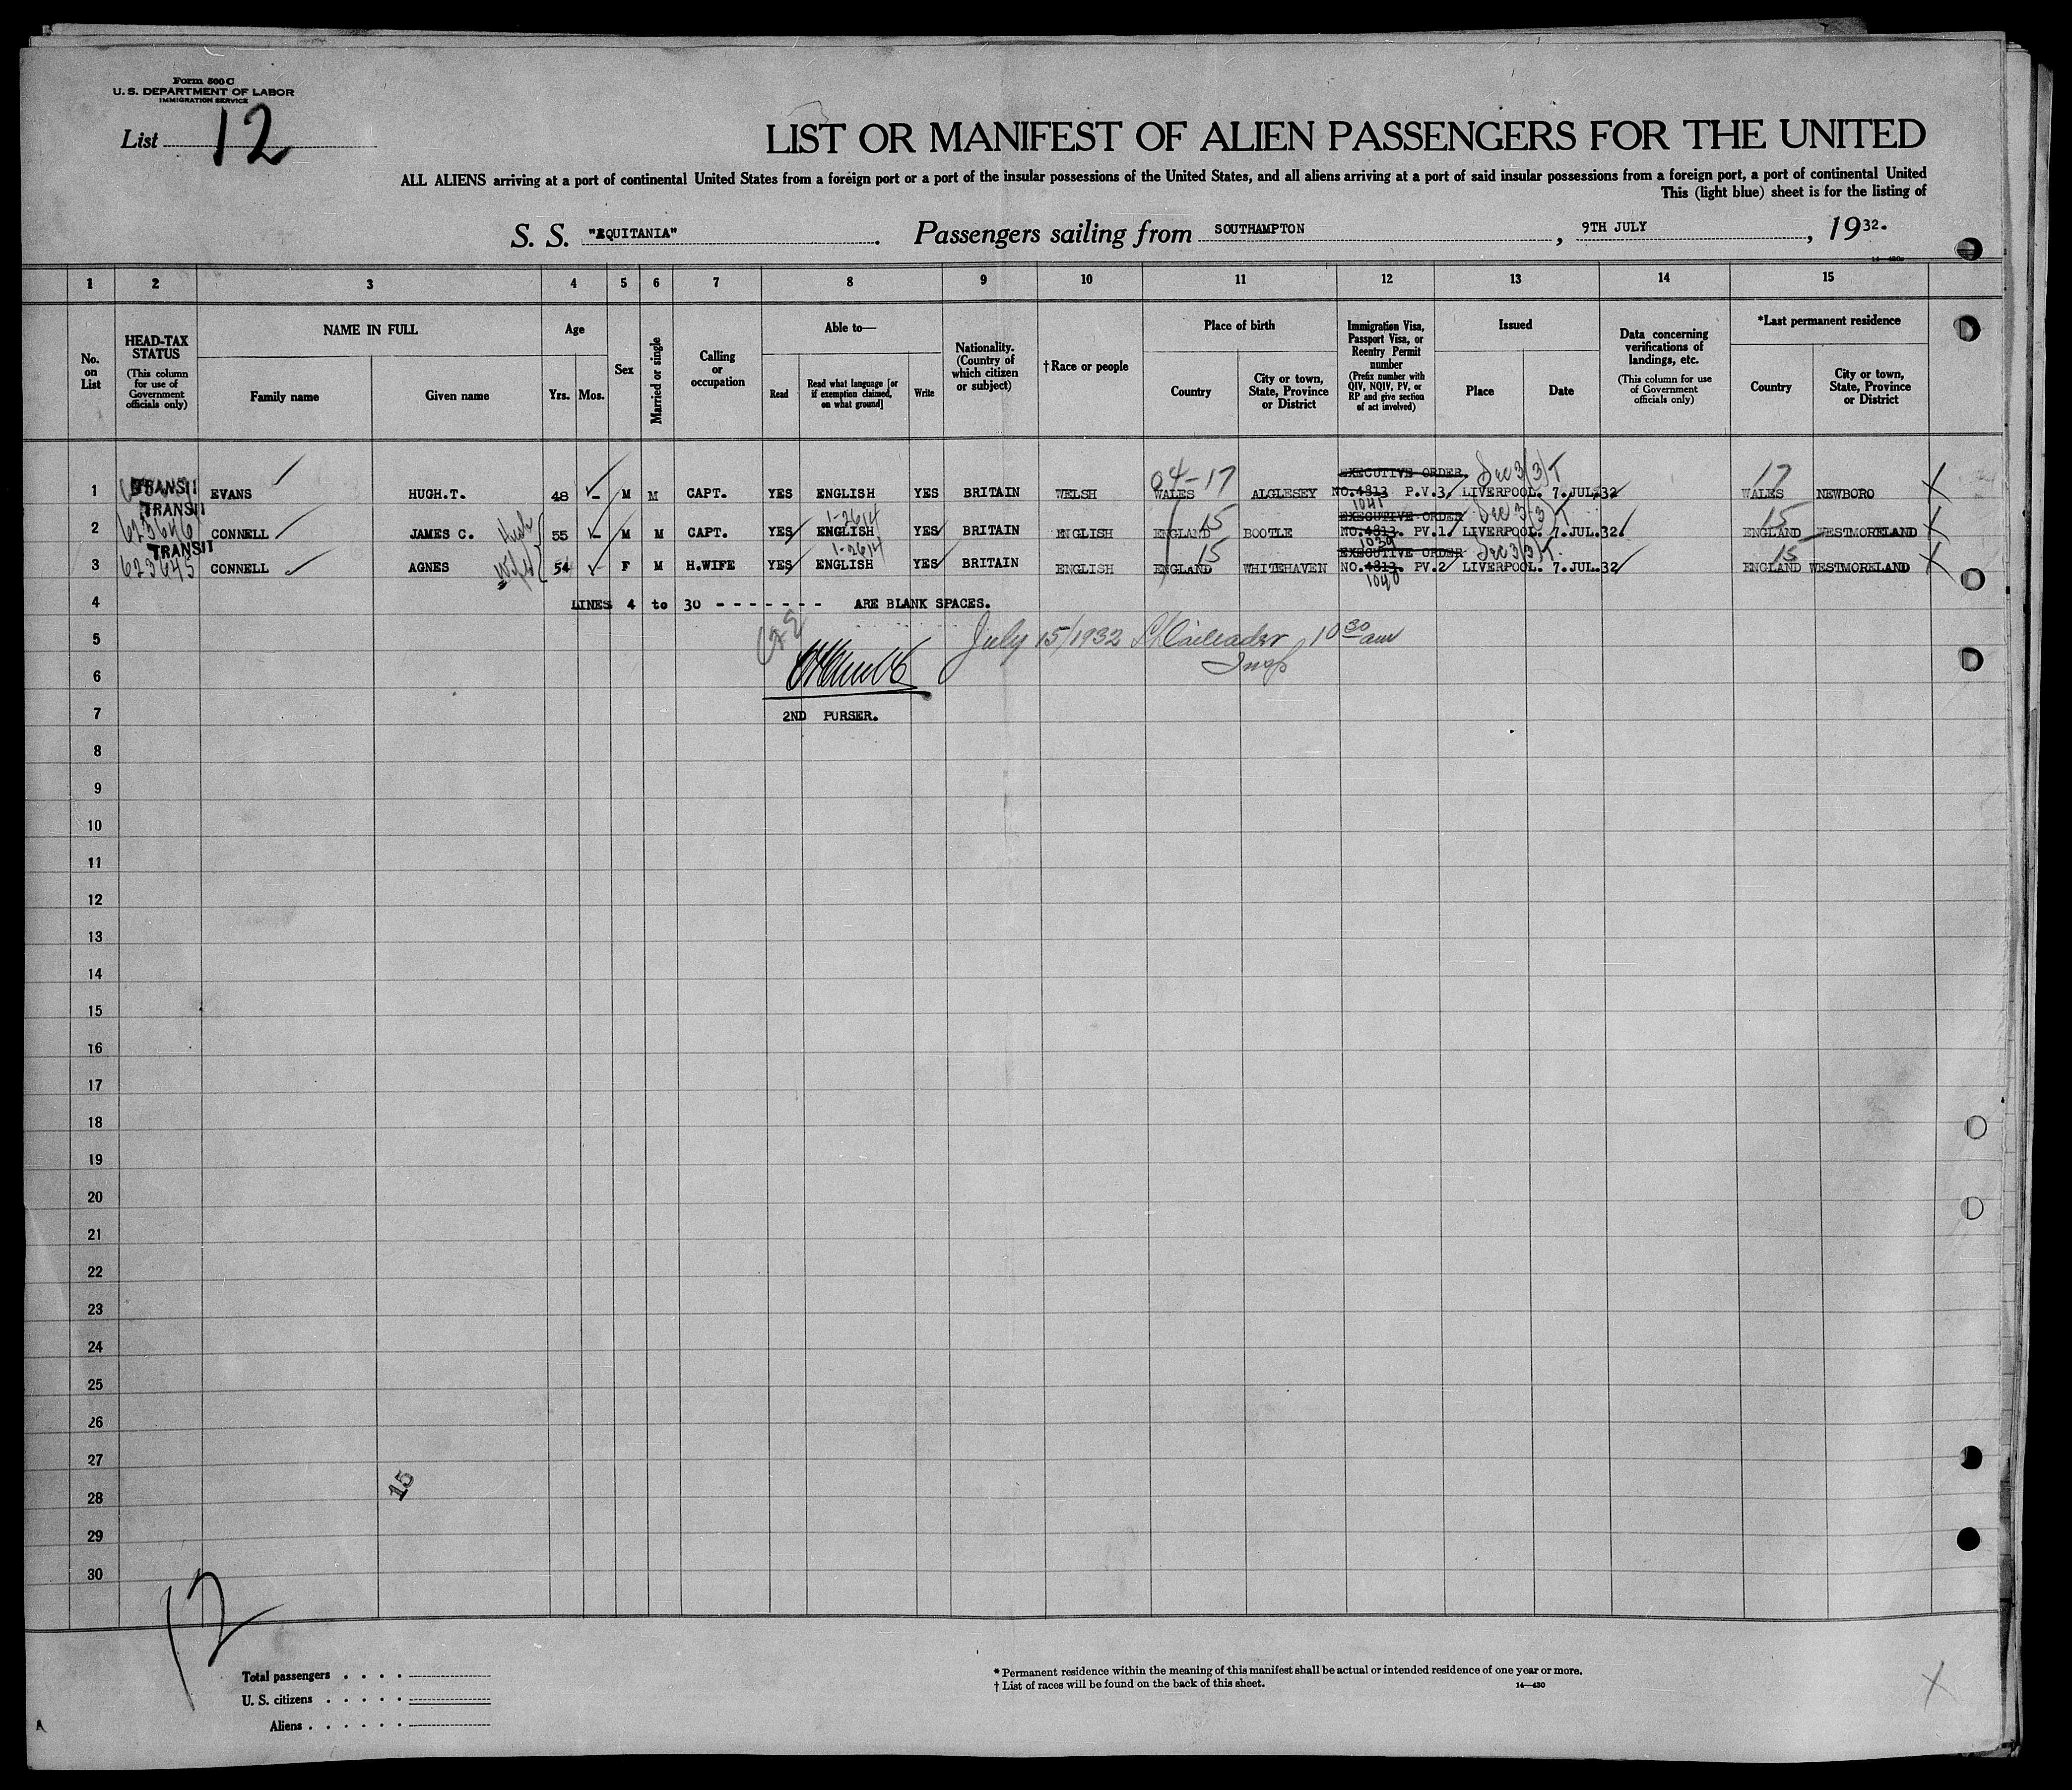 Form 500 C
U. S. DEPARTMENT OF LABOR
IMMIGRATION SERVICE
List 12
LIST OR MANIFEST OF ALIEN PASSENGERS FOR THE UNITED
ALL ALIENS arriving at a port of continental United States from a foreign port or a port of the insular possessions of the United States, and all aliens arriving at a port of said insular possessions from a foreign port, a port of continental United
This (light blue) sheet is for the listing of
S. S. "AQUITANIA". Passengers sailing from SOUTHAMPTON, 9TH JULY, 1932.
14—430
1 2 3 4 5 6 7 8 9 10 11 12 13 14 15
No. on List
HEAD-TAX STATUS
(This column for use of Government officials only)
NAME IN FULL
Family name
Given name
Age
Yrs. Mos.
Sex
Married or single
Calling or occupation
Able to—
Read
Read what language [or if exemption claimed, on what ground]
Write
Nationality. (Country of which citizen or subject)
†Race or people
Place of birth
Country
City or town, State, Province or District
Immigration Visa, Passport Visa, or Reentry Permit number
(Prefix number with QIV, NQIV, PV, or RP and give section of act involved)
Issued
Place
Date
Data concerning verifications of landings, etc.
(This column for use of Government officials only)
*Last permanent residence
Country
City or town, State, Province or District
04-17 EXECUTIVE ORDER. Sec 3(3) T 17
1 TRANSIT EVANS HUGH.T. 48 M M CAPT. YES ENGLISH YES BRITAIN WELSH WALES ALGLESEY NO.4813 P.V.3. LIVERPOOL. 7.JUL.32 WALES NEWBORO X
TRANSIT 1041
1-26/4 15 EXECUTIVE ORDER Sec 3(3) T 15
2 623646 CONNELL JAMES C. Husb 55 M M CAPT. YES ENGLISH YES BRITAIN ENGLISH ENGLAND BOOTLE NO.4813. PV.1. LIVERPOOL. 7.JUL.32. ENGLAND WESTMORELAND X
TRANSIT 1039
1-26/4 15 EXECUTIVE ORDER Sec 3(3) T. 15
3 623645 CONNELL AGNES Wife 54 F M H.WIFE YES ENGLISH YES BRITAIN ENGLISH ENGLAND WHITEHAVEN NO.4813. PV.2 LIVERPOOL. 7.JUL.32 ENGLAND WESTMORELAND X
1040
4 LINES 4 to 30 - - - - - - - ARE BLANK SPACES.
5 July 15/1932 10 30 am
Insp
6
7 2ND PURSER.
8
9
10
11
12
13
14
15
16
17
18
19
20
21
22
23
24
25
26
27
28 15
29
30
12
Total passengers . . . .
U. S. citizens . . . . .
Aliens . . . . . .
* Permanent residence within the meaning of this manifest shall be actual or intended residence of one year or more.
† List of races will be found on the back of this sheet.
14—430
X